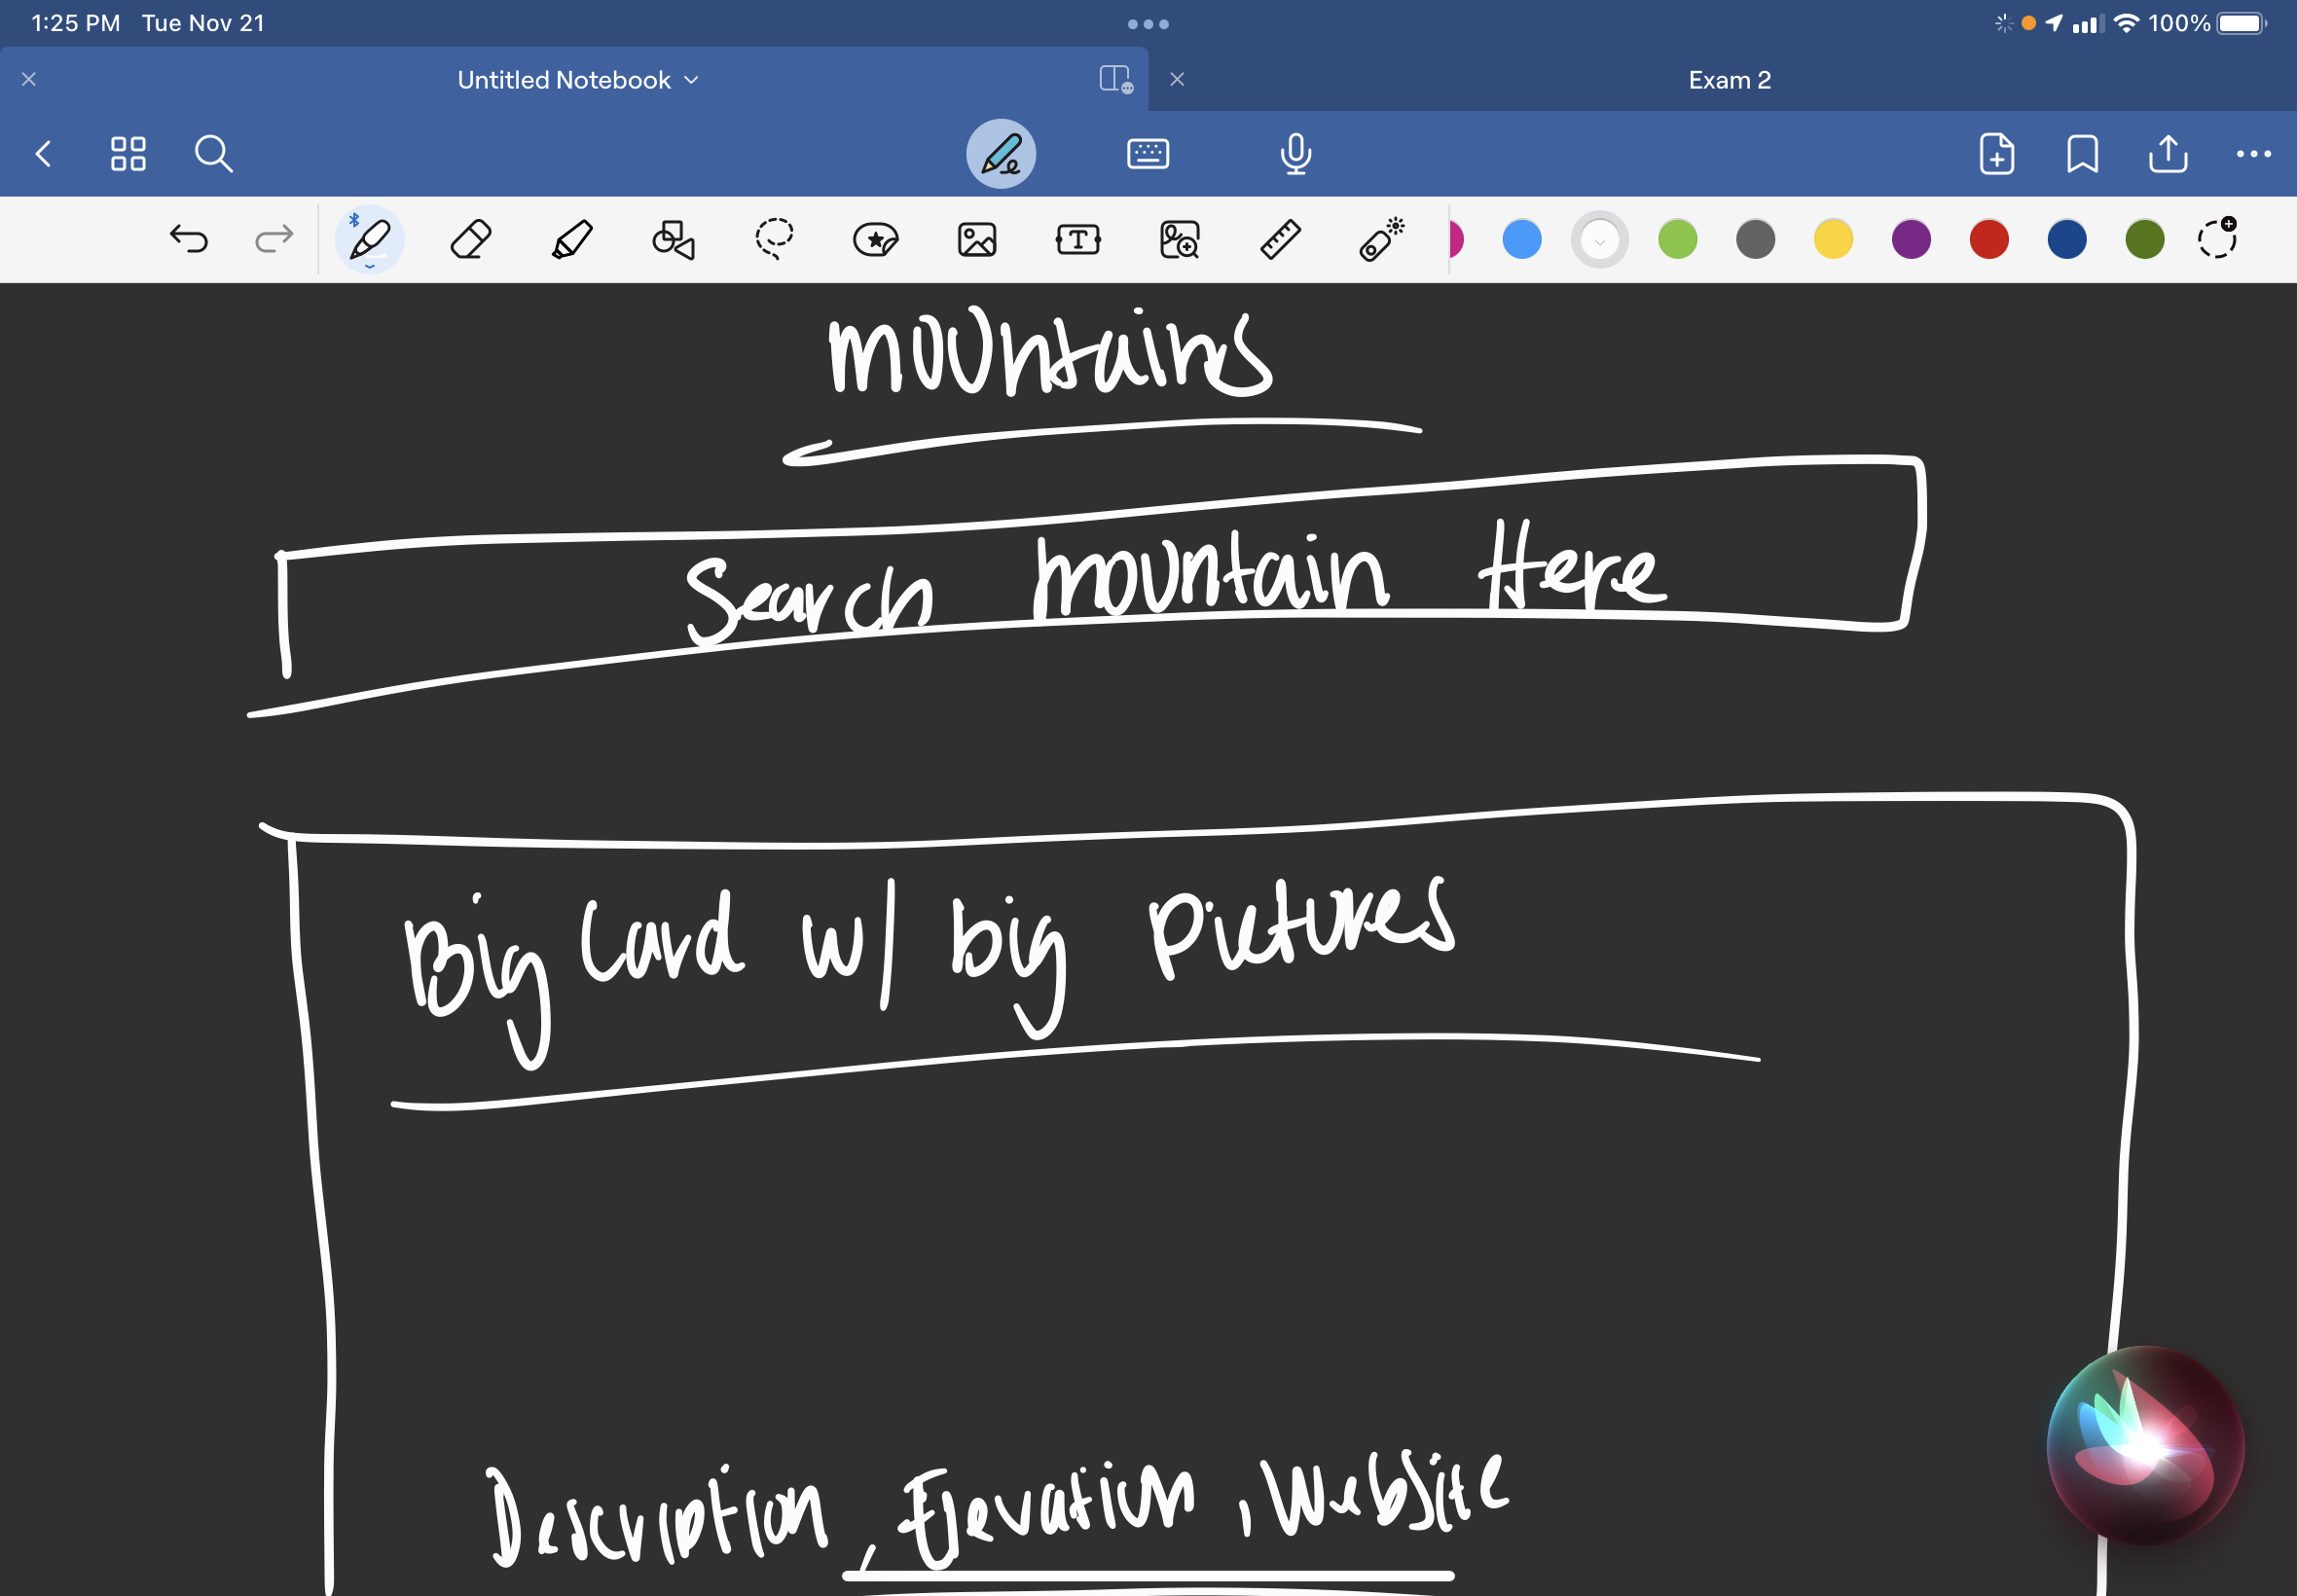 1:25 PM Tue Nov 21
100%
Untitled Notebook
Exam 2
T
mountains
Search mountain Here
Big Card w/ big pictures
Description, Elevation, Website